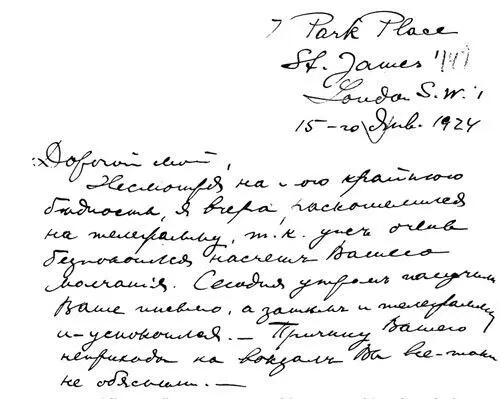 7 Park Place
St. James'
London S.W. 1
15-го Янв. 1924
Дорогой мой,
Несмотря на мою крайнюю
бѣдность, я вчера раскошелился
на телеграмму, т.к. ужъ очень
безпокоился насчетъ Вашего
молчанія. Сегодня утромъ получилъ
Ваше письмо, а затѣмъ и телеграмму
и успокоился. — Причину Вашего
неприхода на вокзалъ Вы все-таки
не объяснили. —